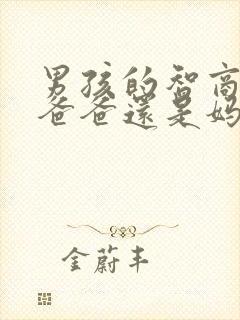 男孩的智商
爸爸還是妈
金蔚丰